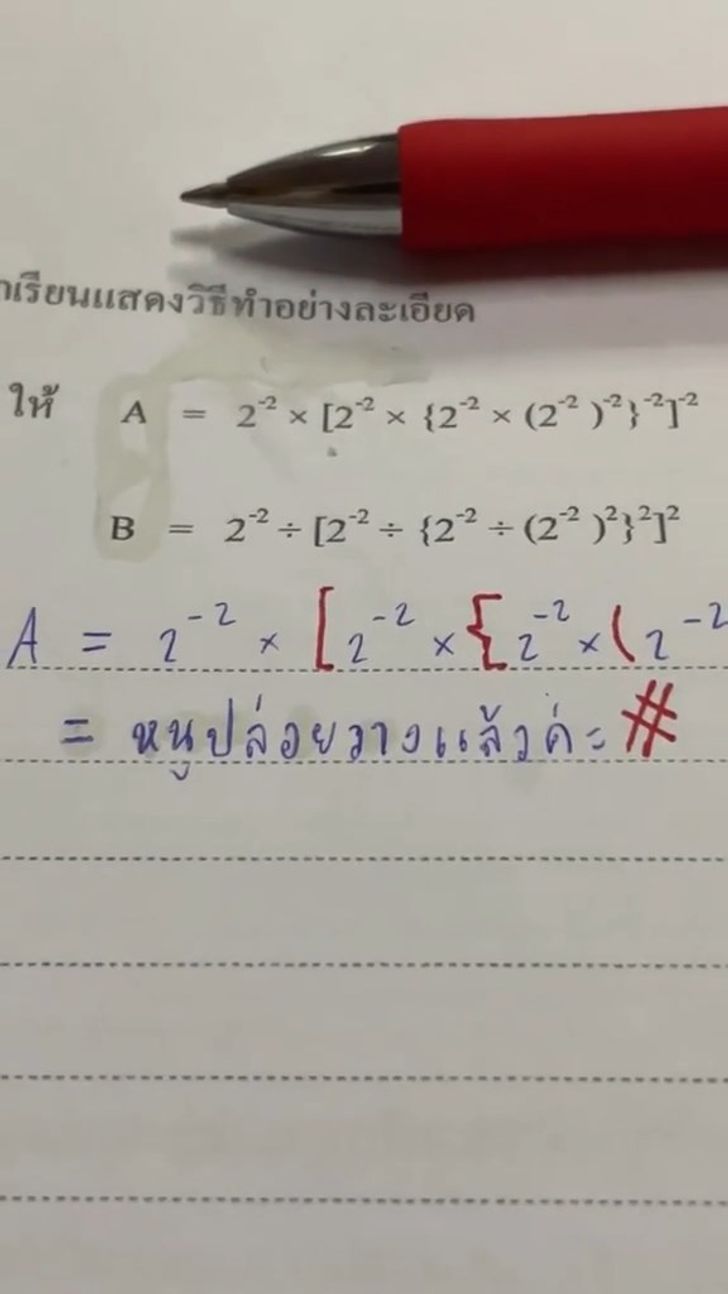 เรียนแสดงวิธีทำอย่างละเอียด
ให้ A = 2⁻² × [2⁻² × {2⁻² × (2⁻²)⁻²}⁻²]⁻²
B = 2⁻² ÷ [2⁻² ÷ {2⁻² ÷ (2⁻²)²}²]²
A = 2⁻² × [2⁻² × {2⁻² × (2⁻²
= หนูปล่อยวางแล้วค่ะ #